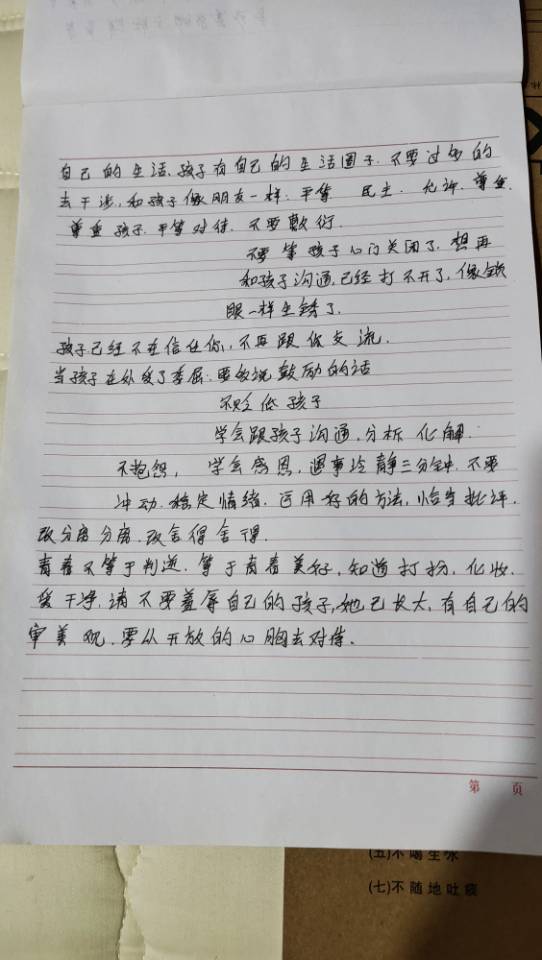 自己的生活、孩子有自己的生活圈子.不要过多的
去干涉,和孩子像朋友一样.平等 民主.允许.尊重.
尊重孩子.平等对待.不要敷衍.
不要等孩子心门关闭了.想再
和孩子沟通,已经打不开了,像锁
眼一样生锈了.
孩子已经不在信任你,不再跟你交流.
当孩子在外受了委屈.要多说鼓励的话
不贬低孩子
学会跟孩子沟通.分析化解.
不抱怨, 学会感恩,遇事冷静三分钟.不要
冲动.稳定情绪.运用好的方法,恰当批评.
改分离分离.改舍得舍得.
青春不等于判逆.等于青春美好,知道打扮.化妆.
爱干净,请不要羞辱自己的孩子,她已长大,有自己的
审美观.要从开放的心胸去对待.
第 页
(五)不喝生水
(七)不随地吐痰